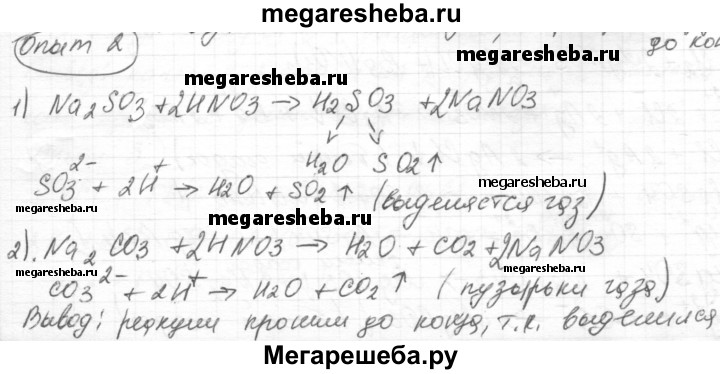 megaresheba.ru
Опыт 2
до кон
megaresheba.ru megaresheba.ru
1) Na2SO3 + 2HNO3 → H2SO3 + 2NaNO3
H2O SO2↑
SO3²⁻ + 2H⁺ → H2O + SO2↑ (выделяется газ)
megaresheba.ru megaresheba.ru megaresheba.ru
2). Na2CO3 + 2HNO3 → H2O + CO2 + 2NaNO3
megaresheba.ru megaresheba.ru megaresheba.ru
CO3²⁻ + 2H⁺ → H2O + CO2↑ (пузырьки газа)
Вывод: реакции прошли до конца, т.к. выделился
Мегарешеба.ру